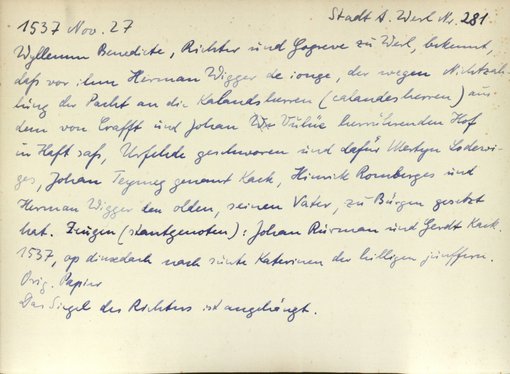 1537 Nov. 27 Stadt A. Werl Nr. 281.
Wyllemm Benedicte, Richter und Gogreve zu Werl, bekennt,
daß vor ihm Herman Wigger de jonge, der wegen Nichtzah-
lung der Pacht an die Kalandsherren (calandesherren) aus
dem von Crafft und Johan herrührenden Hof
in Haft saß, Urfehde geschworen und dafür Mertyn Lodewi-
ges, Johan Teymeg genannt Kack, Hinrik Romberges und
Herman Wigger den olden, seinen Vater, zu Bürgen gesetzt
hat. Zeugen (stantgenoten): Johan Rurman und Gerdt Kack.
1537, op dinxedach nach sunte Katerinen der hilligen junffern.
Orig. Papier
Das Siegel des Richters ist angehängt.